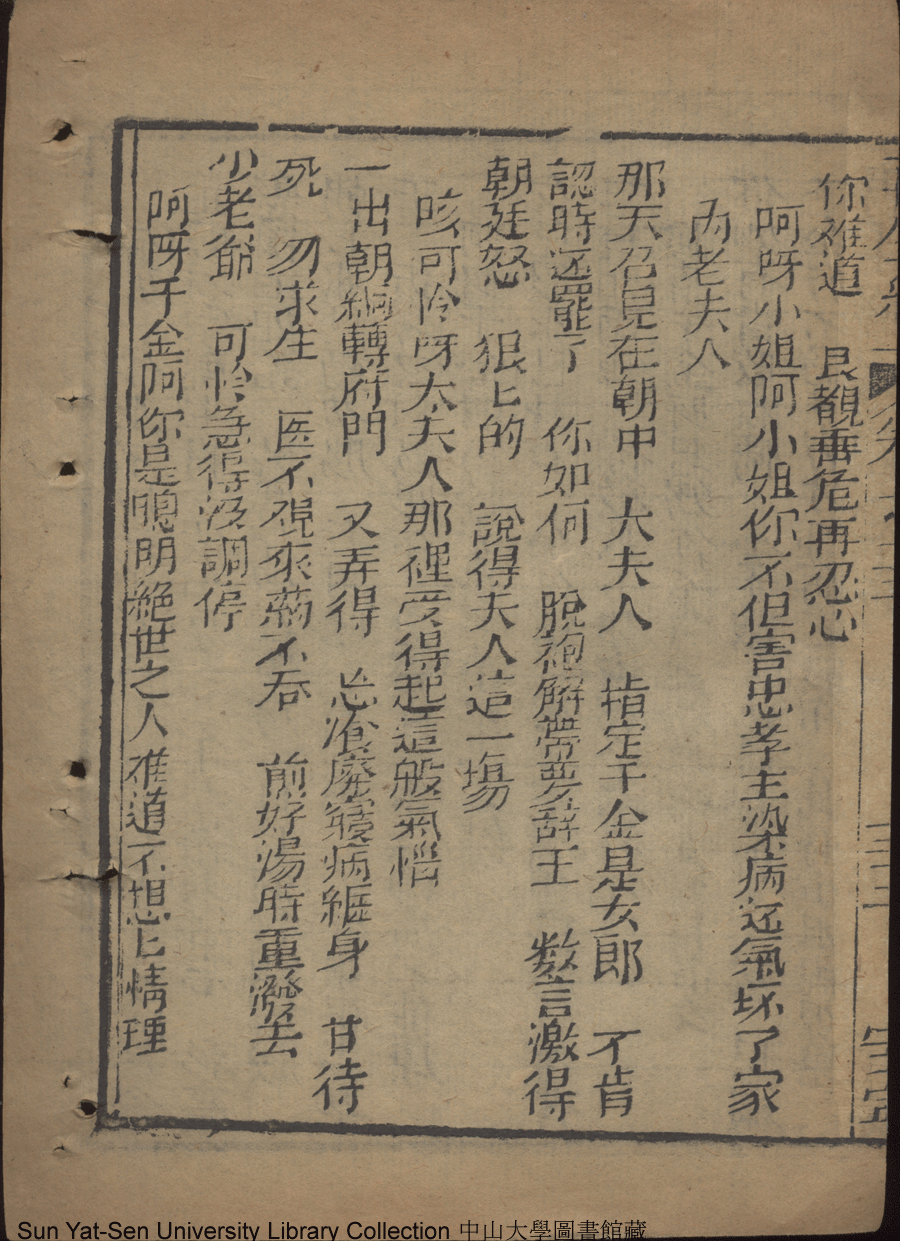 你难道　艮覩垂危再忍心
阿呀小姐阿小姐你不但害忠孝主染病还氣坏了家
内老夫人
那天召見在朝中　大夫人　指定千金是女郎　不肯
認時还罷了　你如何　脫袍解帶要辞王　数言激得
朝廷怒　狠匕的　說得夫人這一塲
咳可怜呀太夫人那裡受得起這般氣惱
一出朝綱轉府門　又弄得　忘飡廢寢病纏身　甘待
死　勿求生　医不視來葯不吞　煎好湯時重潑去
少老爺　可怜急得没調停
阿呀千金阿你是聰明絶世之人难道不想匕情理
Sun Yat-Sen University Library Collection 中山大學圖書館藏